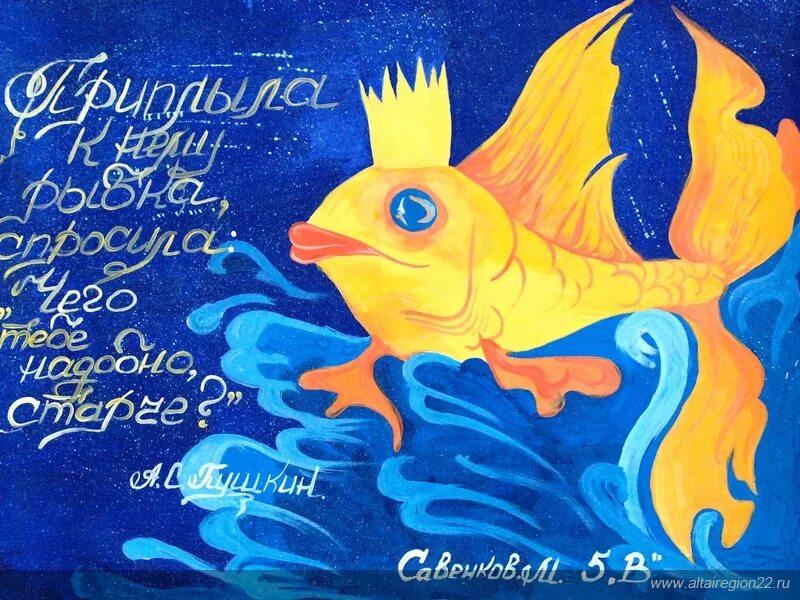 Приплыла
к нему
рыбка,
спросила:
"Чего
тебе
надобно,
старче?"
А.С. Пушкин.
Савенков.М. 5„В"
www.altairegion22.ru